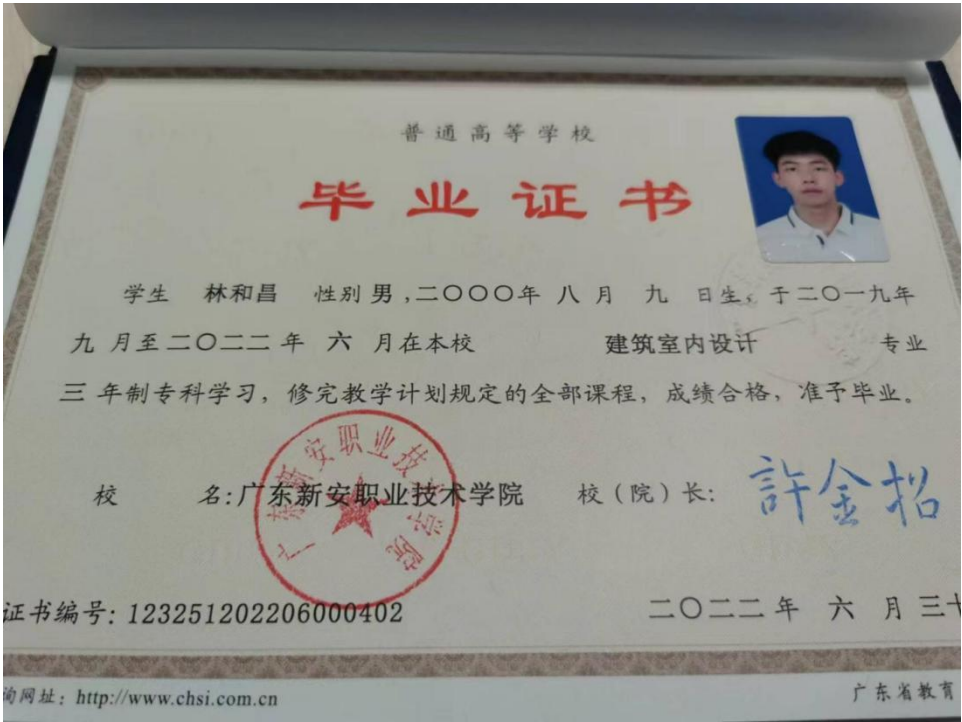 普通高等学校
毕业证书
学生 林和昌 性别 男,二〇〇〇年 八 月 九 日生,于二〇一九年
九 月至二〇二二 年 六 月在本校 建筑室内设计 专业
三 年制专科学习,修完教学计划规定的全部课程,成绩合格,准予毕业。
校 名:广东新安职业技术学院 校(院)长: 許金招
广东新安职业技术学院
证书编号: 123251202206000402 二〇二二 年 六 月 三十
询网址: http://www.chsi.com.cn 广东省教育